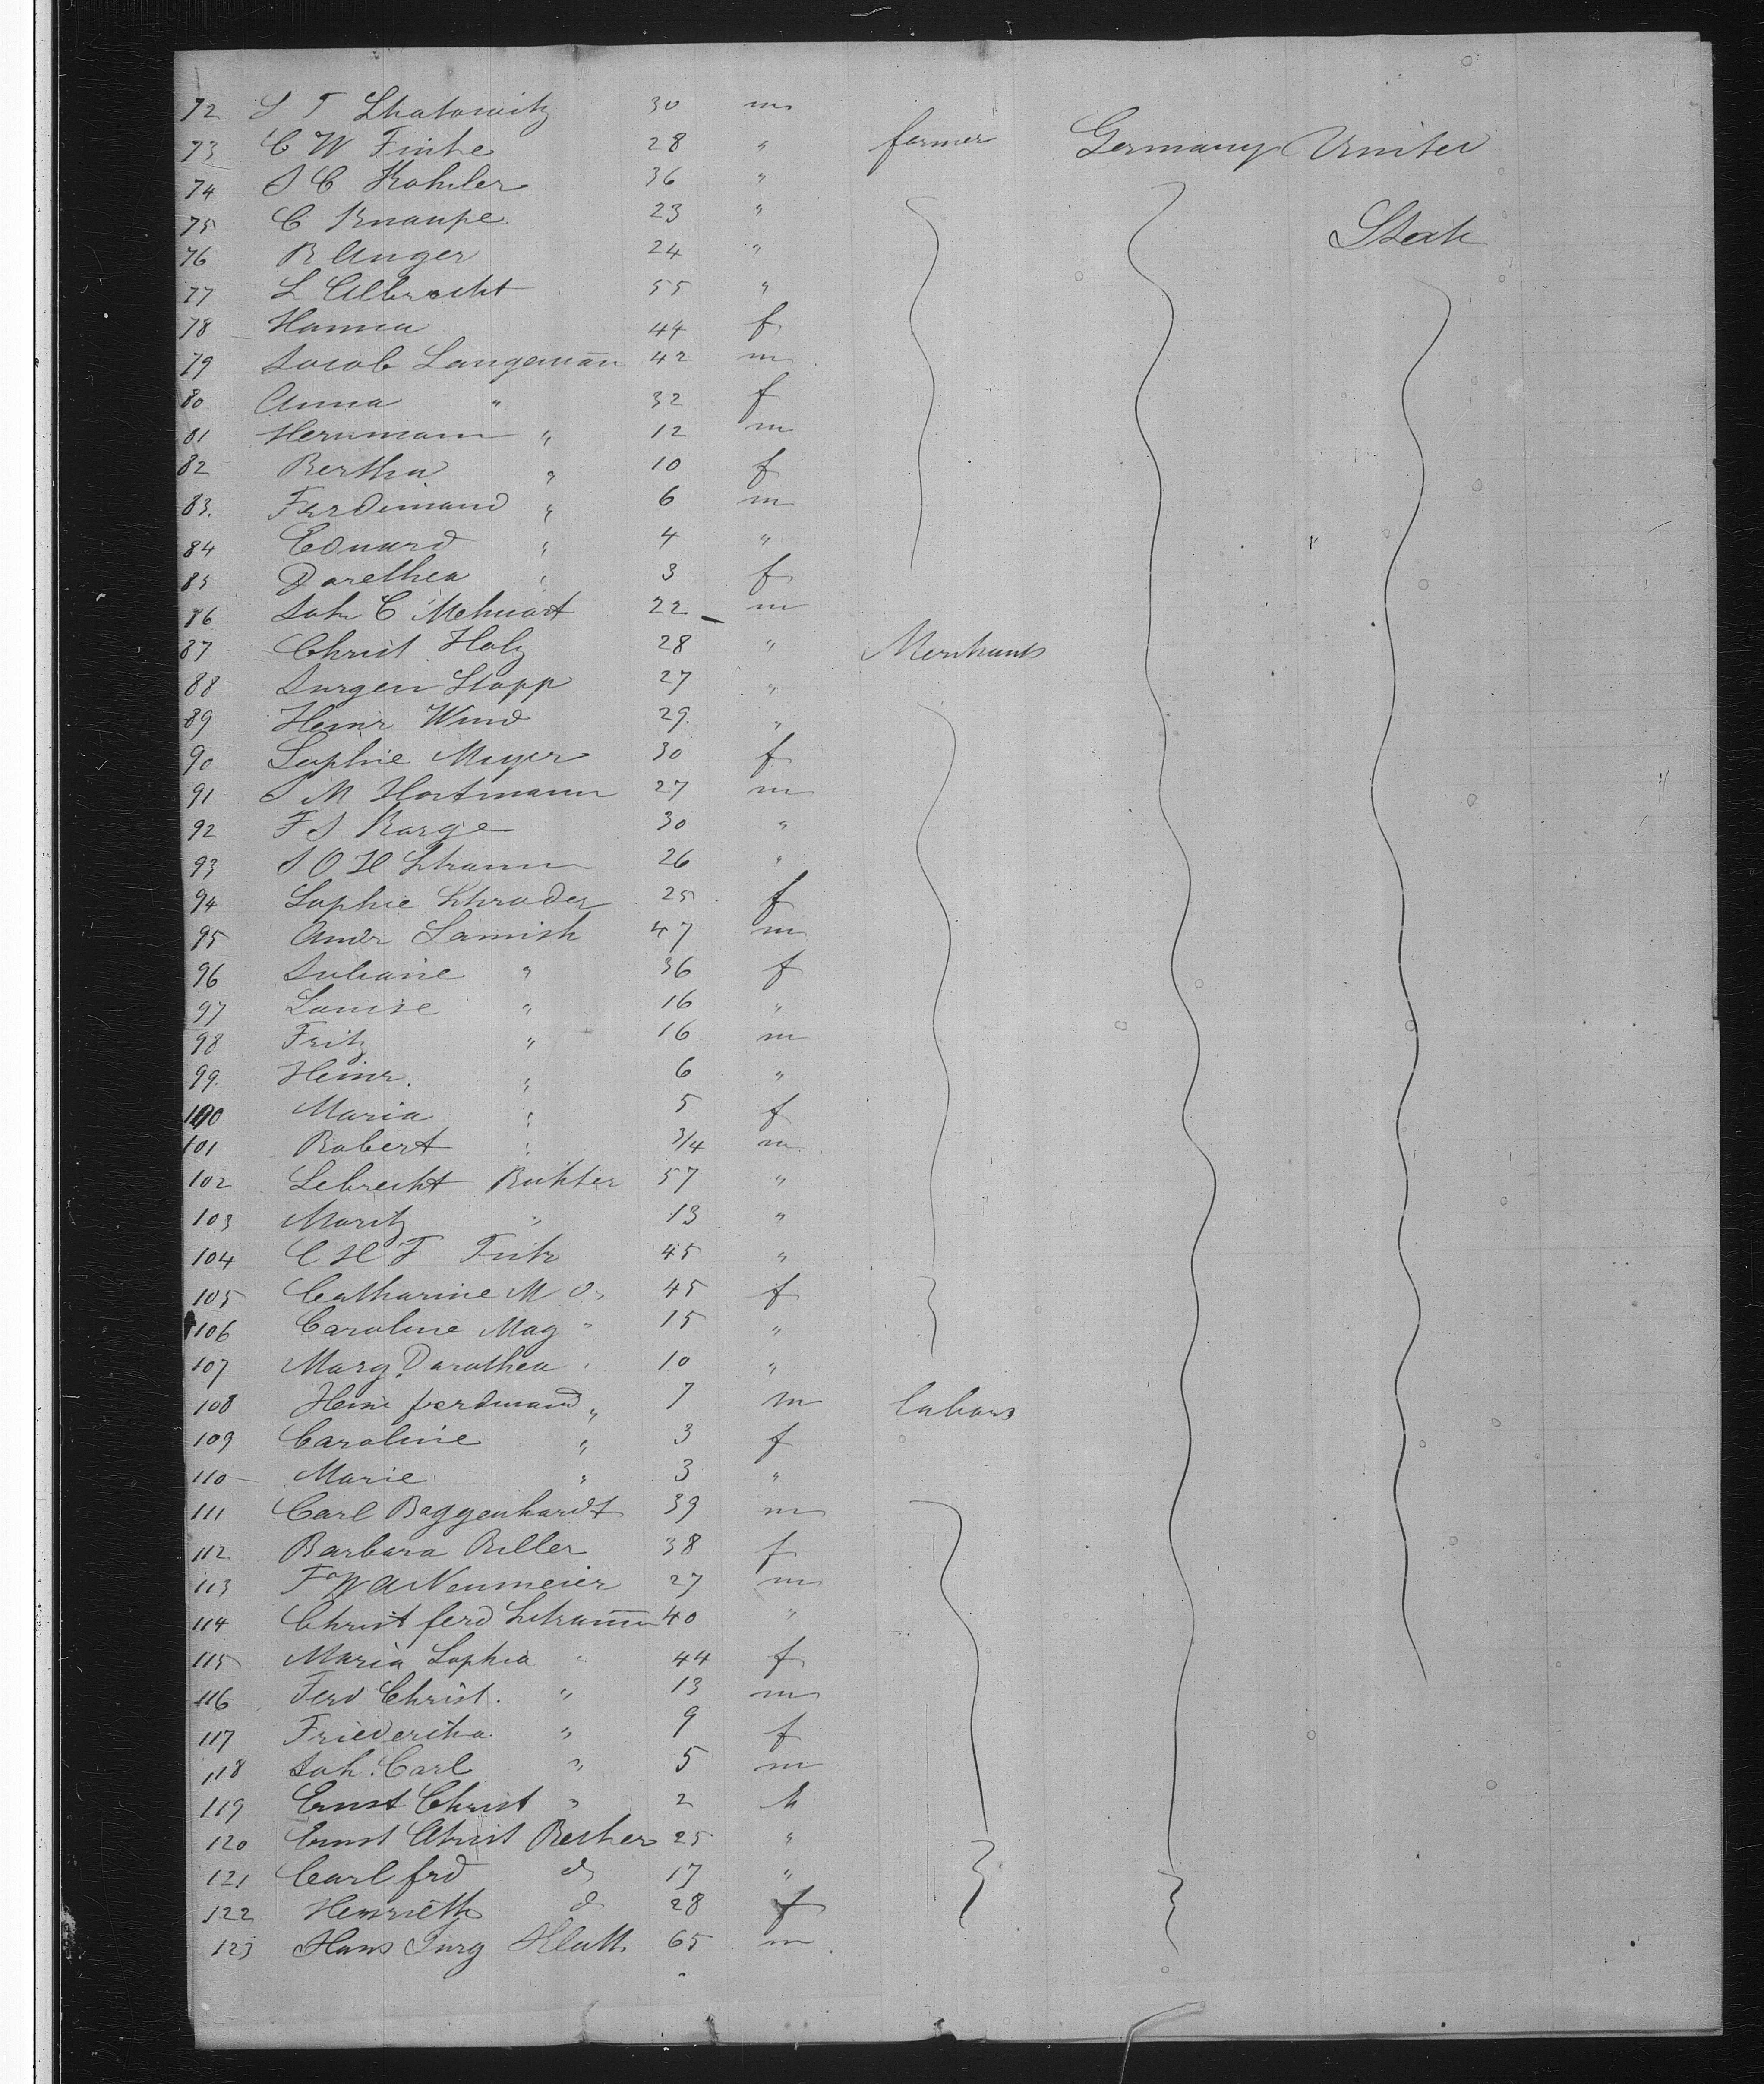 72 S T Skatowitz 30 m
73 C W Finke 28 " farmer Germany United
74 J C Kohler 36 "
75 C Knaupe 23 " State
76 R Unger 24 "
77 L Albrecht 55 "
78 Hanna 44 f
79 Jacob Langemān 42 m
80 Anna " 32 f
81 Hermann " 12 m
82 Bertha " 10 f
83. Ferdinand " 6 m
84 Eduard " 4 "
85 Dorethea " 3 f
86 Joh C Mehwart 22 m
87 Christ Holz 28 " Merchants
88 Jurgen Stapp 27 "
89 Heinr Wind 29. "
90 Sophie Meyer 30 f
91 J M Hartmann 27 m
92 F J Karge 30 "
93 J O H 26 "
94 Sophie Schrader 25 f
95 Andr Lamish 47 m
96 Juliane " 36 f
97 Louise " 16 "
98 Fritz " 16 m
99. Heinr. " 6 "
100 Maria " 5 f
101 Robert " 3/4 m
102 Lebrecht Richter 57 "
103 Moritz " 13 "
104 C H F 45 "
105 Catharine M d. 45 f
106 Caroline Mag " 15 "
107 Marg. Dorothea " 10 "
108 Heinr ferdinand " 7 m labours
109 Caroline " 3 f
110 Marie " 3 "
111 Carl Baggenhardt 39 m
112 Barbara Biller 38 f
113 F W A Neumeier 27 m
114 Christ ferd Schramm 40 "
115 Maria Sophia " 44 f
116 Ferd Christ. " 13 m
117 Friedericka " 9 f
118 Joh. Carl " 5 m
119 Ernst Christ " 2 M
120 Ernst Christ Becker 25 "
121 Carl frd do 17 "
122 Henrietta do 28 f
123 Hans Jurg Klatt 65 m